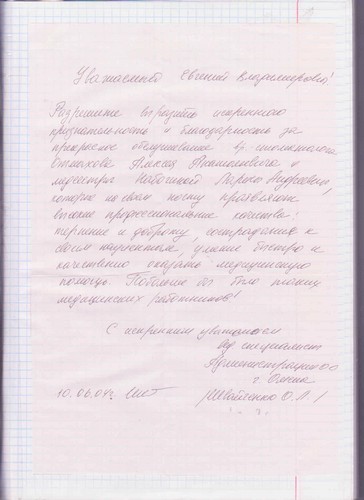 Уважаемый Евгений Владимирович!
Разрешите выразить искреннюю
признательность и благодарность за
прекрасное обслуживание
Алексея Анатольевича и
медсестры Ларисы Андреевны,
которые по свои
высокие профессиональные качества:
терпение и доброту, сострадание к
своим пациентам, умение быстро и
качественно оказать медицинскую
помощь. Побольше бы было таких
медицинских работников!
С искренним уважением
вед. специалист
Администрации
г.
10.06.04г. О.Л.